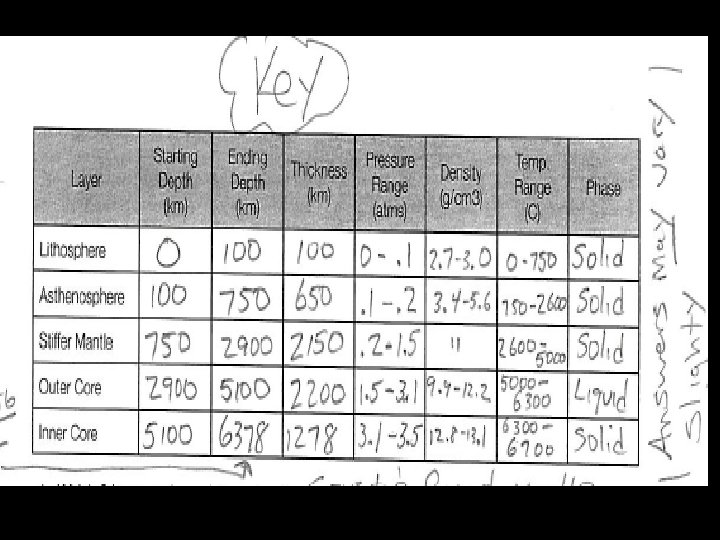 Key
Layer Starting Depth (km) Ending Depth (km) Thickness (km) Pressure Range (atms) Density (g/cm3) Temp. Range (C) Phase
Lithosphere 0 100 100 0-.1 2.7-3.0 0-750 Solid
Asthenosphere 100 750 650 .1-.2 3.4-5.6 750-2600 Solid
Stiffer Mantle 750 2900 2150 .2-1.5 " 2600-5000 Solid
Outer Core 2900 5100 2200 1.5-3.1 9.9-12.2 5000-6300 Liquid
Inner Core 5100 6378 1278 3.1-3.5 12.8-13.1 6300-6700 Solid
Answers may vary
Slighty